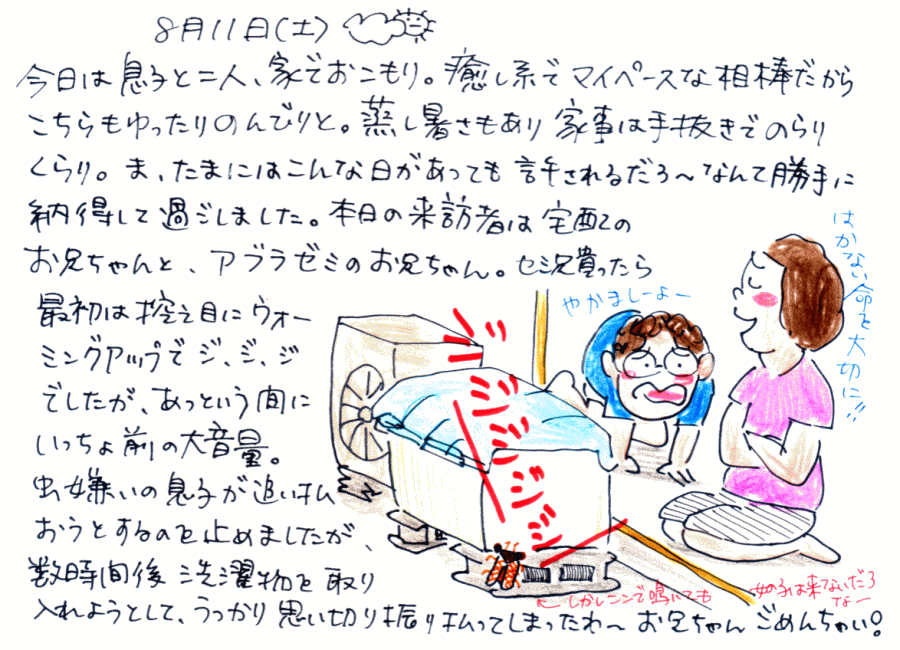 8月11日(土)
今日は息子と二人、家でおこもり。癒し系でマイペースな相棒だから
こちらもゆったりのんびりと。蒸し暑さもあり家事は手抜きでのらり
くらり。ま、たまにはこんな日があっても許されるだろ〜なんて勝手に
納得して過ごしました。本日の来訪者は宅配の
お兄ちゃんと、アブラゼミのお兄ちゃん。セミ兄貴ったら
最初は控え目にウォー
ミングアップでジ、ジ、ジ
でしたが、あっという間に
いっちょ前の大音量。
虫嫌いの息子が追い払
おうとするのを止めましたが、
数時間後洗濯物を取り
入れようとして、うっかり思い切り振り払ってしまったわ〜お兄ちゃんごめんちゃい!
やかましーよー
はかない命を大切に!!
ジジジジジ
しかしココで鳴いても
女子は来ないだろ
なー